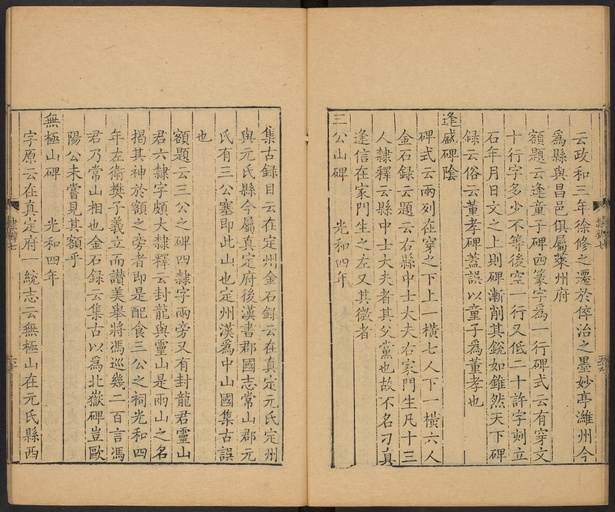 云政和三年徐修之遷於倅治之墨妙亭濰州今
為縣與昌邑俱屬萊州府
額題云逢童子碑四篆字為一行碑式云有穿文
十行字多少不等後空一行又低二十許字刻立
石年月日文之上則碑漸削其銳如錐然天下碑
錄云俗云董孝碑蓋誤以童子為董孝也
逢盛碑陰
碑式云兩列在穿之下上一橫七人下一橫六人
金石錄云題云右縣中士大夫右家門生凡十三
人隸釋云縣中士大夫者其父黨也故不名刁真
逢信在家門生之左又其微者
三公山碑　光和四年
集古錄目云在定州金石錄云在真定元氏定州
與元氏縣今屬真定府後漢書郡國志常山郡元
氏有三公塞即此山也定州漢為中山國集古誤
也
額題云三公之碑四隸字兩旁又有封龍君靈山
君六隸字頗大隸釋云封龍與靈山是兩山之名
揭其神於額之旁者即是配食三公之祠光和四
年左衛樊子義立而譜美舉將馮巡幾二百言馮
君乃常山相也金石錄云集古以為北嶽碑豈歐
陽公未嘗見其額乎
無極山碑　光和四年
字原云在真定府一統志云無極山在元氏縣西